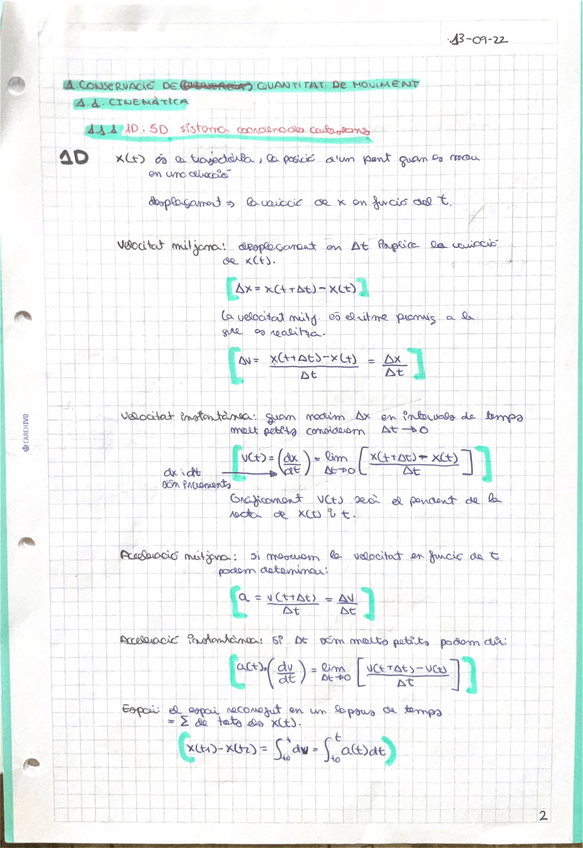 13-09-22
1. CONSERVACIÓ DE QUANTITAT DE MOVIMENT
1.1. CINEMÀTICA
1.1.1 1D, 3D sistema coordenades cartesianes
1D x(t) és la trajectòria, la posició d'un punt quan es mou
en una direcció
desplaçament ⇒ la variació de x en funció del t.
Velocitat mitjana: desplaçament en Δt implica la variació
de x(t).
[Δx = x(t+Δt) - x(t)]
La velocitat mitj és el ritme promig a la
que es realitza.
[Δv = x(t+Δt) - x(t) / Δt = Δx / Δt]
Velocitat instantànea: quan medim Δx en intervals de temps
molt petits considerem Δt → 0
[v(t) = (dx/dt) = lim Δt→0 [x(t+Δt) - x(t) / Δt]]
dx i dt
són increments
Gràficament v(t) serà el pendent de la
recta de x(t) i t.
Acceleració mitjana: si mesurem la velocitat en funció de t
podem determinar:
[a = v(t+Δt) / Δt = Δv / Δt]
Acceleració instantànea: Si Δt són molts petits podem dir:
[a(t) = (dv/dt) = lim Δt→0 [v(t+Δt) - v(t) / Δt]]
Espai: el espai recorregut en un lapsus de temps
= Σ de tots els x(t).
(x(t1) - x(t2) = ∫ t0 t dv = ∫ t0 t a(t) dt)
CARCHIVO
2